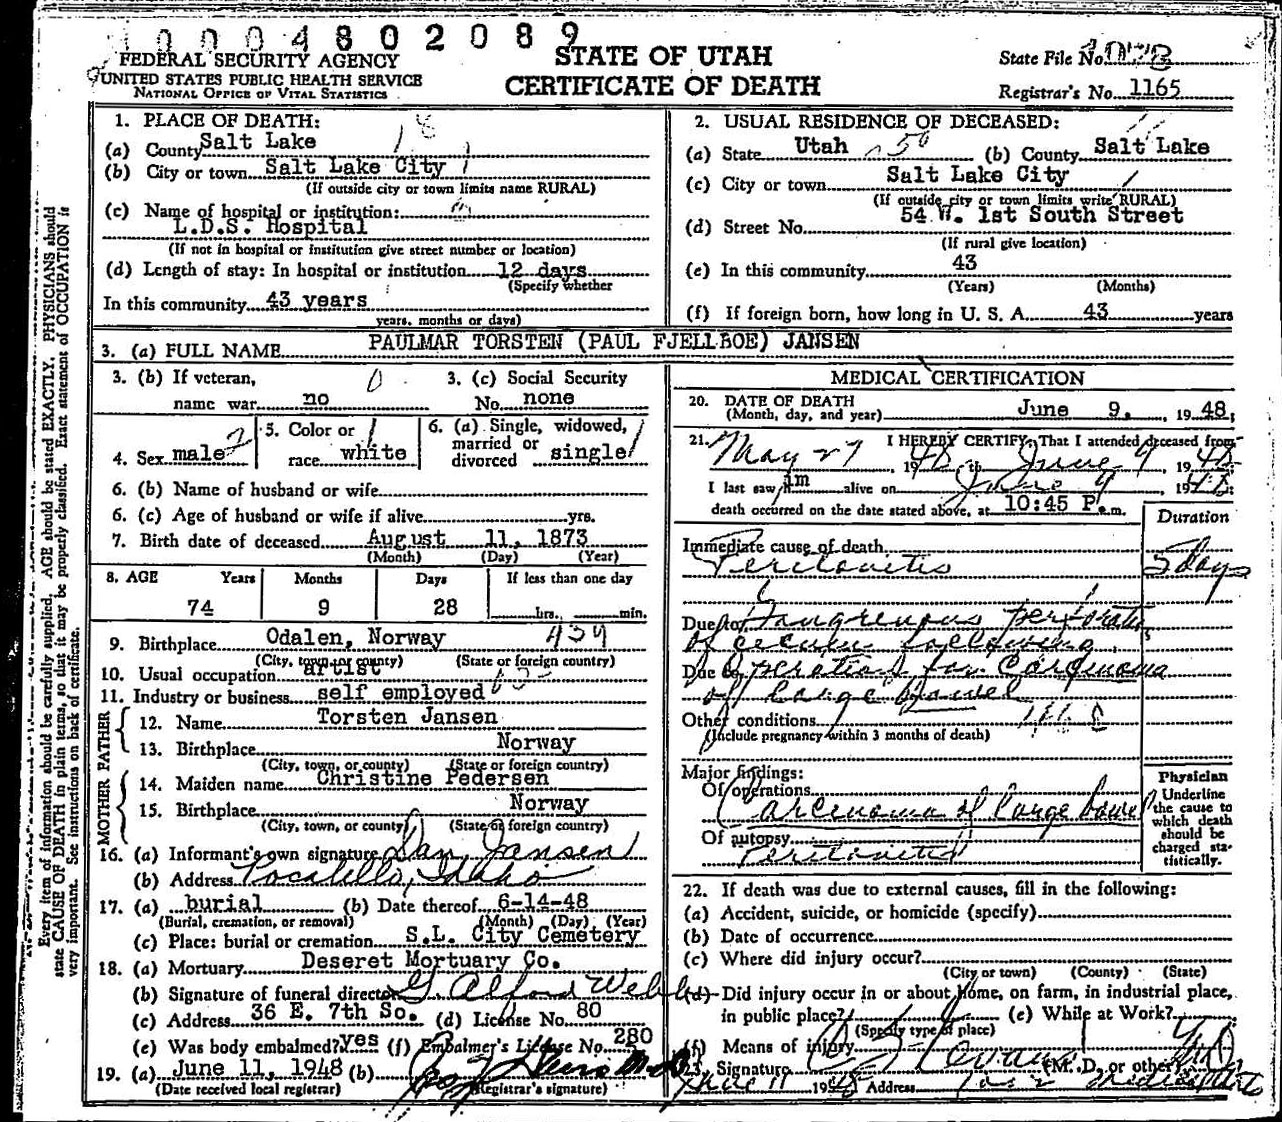 0004802089
FEDERAL SECURITY AGENCY
UNITED STATES PUBLIC HEALTH SERVICE
NATIONAL OFFICE OF VITAL STATISTICS
STATE OF UTAH
CERTIFICATE OF DEATH
State File No.
Registrar's No. 1165
Every item of information should be carefully supplied. AGE should be stated EXACTLY. PHYSICIANS should
state CAUSE OF DEATH in plain terms, so that it may be properly classified. Exact statement of OCCUPATION is
very important. See instructions on back of certificate.
1. PLACE OF DEATH: 18
(a) County Salt Lake
(b) City or town Salt Lake City 1
(If outside city or town limits name RURAL)
(c) Name of hospital or institution:
L.D.S. Hospital
(If not in hospital or institution give street number or location)
(d) Length of stay: In hospital or institution 12 days
(Specify whether
In this community 43 years
years, months or days)
2. USUAL RESIDENCE OF DECEASED:
(a) State Utah (b) County Salt Lake
(c) City or town Salt Lake City
(If outside city or town limits write RURAL)
(d) Street No. 54 W. 1st South Street
(If rural give location)
(e) In this community 43
(Years) (Months)
(f) If foreign born, how long in U. S. A. 43 years
3. (a) FULL NAME PAULMAR TORSTEN (PAUL FJELLBOE) JANSEN
3. (b) If veteran, 0 3. (c) Social Security
name war no No. none
4. Sex male 2 5. Color or race white 1 6. (a) Single, widowed, married or divorced single 1
6. (b) Name of husband or wife
6. (c) Age of husband or wife if alive yrs.
7. Birth date of deceased August 11, 1873
(Month) (Day) (Year)
8. AGE Years Months Days If less than one day
74 9 28 hrs. min.
9. Birthplace Odalen, Norway 439
(City, town or county) (State or foreign country)
10. Usual occupation artist
11. Industry or business self employed
FATHER
12. Name Torsten Jansen
13. Birthplace Norway
(City, town, or county) (State or foreign country)
MOTHER
14. Maiden name Christine Pedersen
15. Birthplace Norway
(City, town, or county) (State or foreign country)
16. (a) Informant's own signature Dan Jansen
(b) Address Pocatello, Idaho
17. (a) burial (b) Date thereof 6-14-48
(Burial, cremation, or removal) (Month) (Day) (Year)
(c) Place: burial or cremation S.L. City Cemetery
18. (a) Mortuary Deseret Mortuary Co.
(b) Signature of funeral director G Alford Webb
(c) Address 36 E. 7th So. (d) License No. 80
(e) Was body embalmed? yes (f) Embalmer's License No. 280
19. (a) June 11, 1948 (b)
(Date received local registrar) (Registrar's signature)
MEDICAL CERTIFICATION
20. DATE OF DEATH
(Month, day, and year) June 9, 1948;
21. I HEREBY CERTIFY, That I attended deceased from
May 27, 1948 to June 9, 1948
I last saw him alive on June 9, 1948;
death occurred on the date stated above, at 10:45 P.m.
Duration
Immediate cause of death
Peritonitis 5 days
Due to Gangrenous perforation
of cecum following
Due to operation for Carcinoma
of large bowel
Other conditions
(Include pregnancy within 3 months of death)
Major findings:
Of operations
Carcinoma of large bowel
Of autopsy
Peritonitis
Physician
Underline
the cause to
which death
should be
charged sta-
tistically.
22. If death was due to external causes, fill in the following:
(a) Accident, suicide, or homicide (specify)
(b) Date of occurrence
(c) Where did injury occur?
(City or town) (County) (State)
(d) Did injury occur in or about home, on farm, in industrial place,
in public place? (e) While at Work?
(Specify type of place)
(f) Means of injury
23. Signature Evans (M. D. or other) MD
June 11 1948 Address